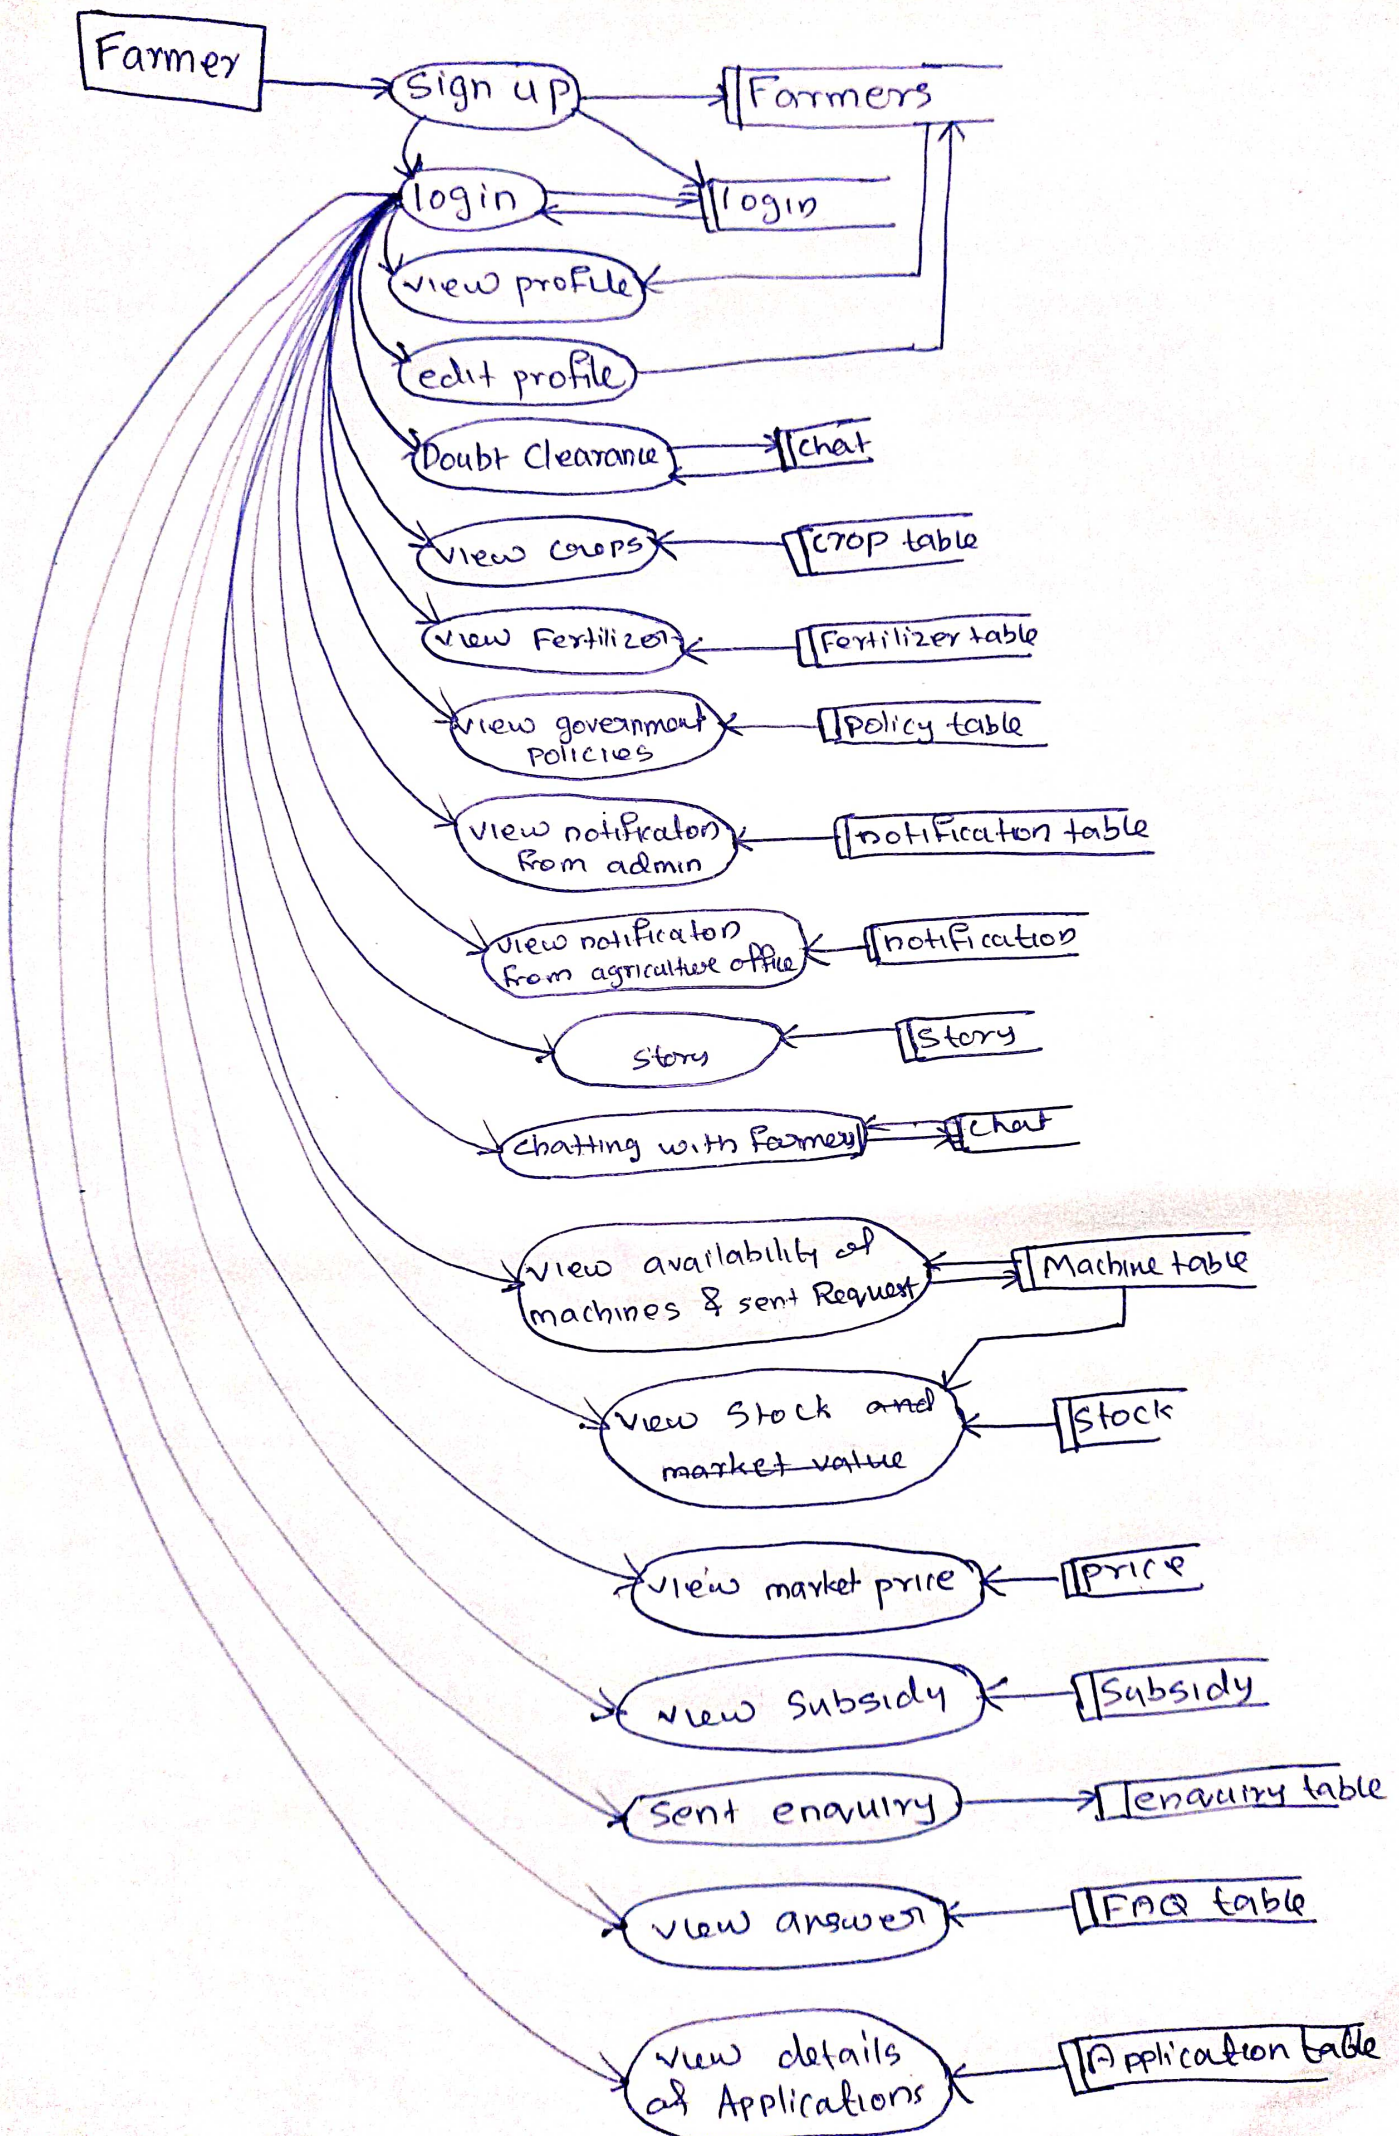 Farmer
Sign up
Farmers
login
login
view profile
edit profile
Doubt Clearance
chat
view crops
crop table
view Fertilizer
Fertilizer table
view government
policies
policy table
view notificaton
from admin
notification table
view notificaton
from agriculture office
notification
story
Story
chatting with farmers
chat
view availability of
machines & sent Request
Machine table
view Stock and
market value
Stock
view market price
price
view Subsidy
Subsidy
Sent enquiry
enquiry table
view answer
FAQ table
view details
of Applications
Application table